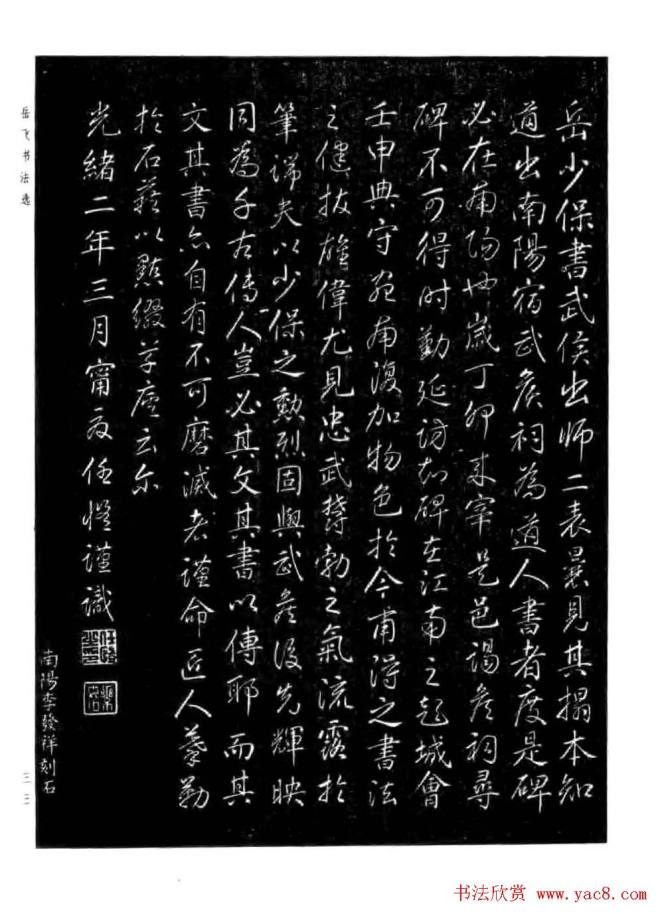 岳少保書武侯出師二表曩見其搨本知
道出南陽宿武侯祠為道人書者度是碑
必在南陽也歲丁卯來宰是邑謁侯祠尋
碑不可得時勤延訪知碑在江南之彭城會
壬申典守宛南復加物色於今甫得之書法
之健拔雄偉尤見忠武鬱勃之氣流露於
筆端夫以少保之勳烈固與武侯後先輝映
同為千古傳人豈必其文其書以傳耶而其
文其書亦自有不可磨滅者謹命匠人摹勒
於石藉以點綴草廬云尔
光緒二年三月甯夏任愷謹識
南陽李發祥刻石
岳飞书法选
三三
书法欣赏 www.yac8.com